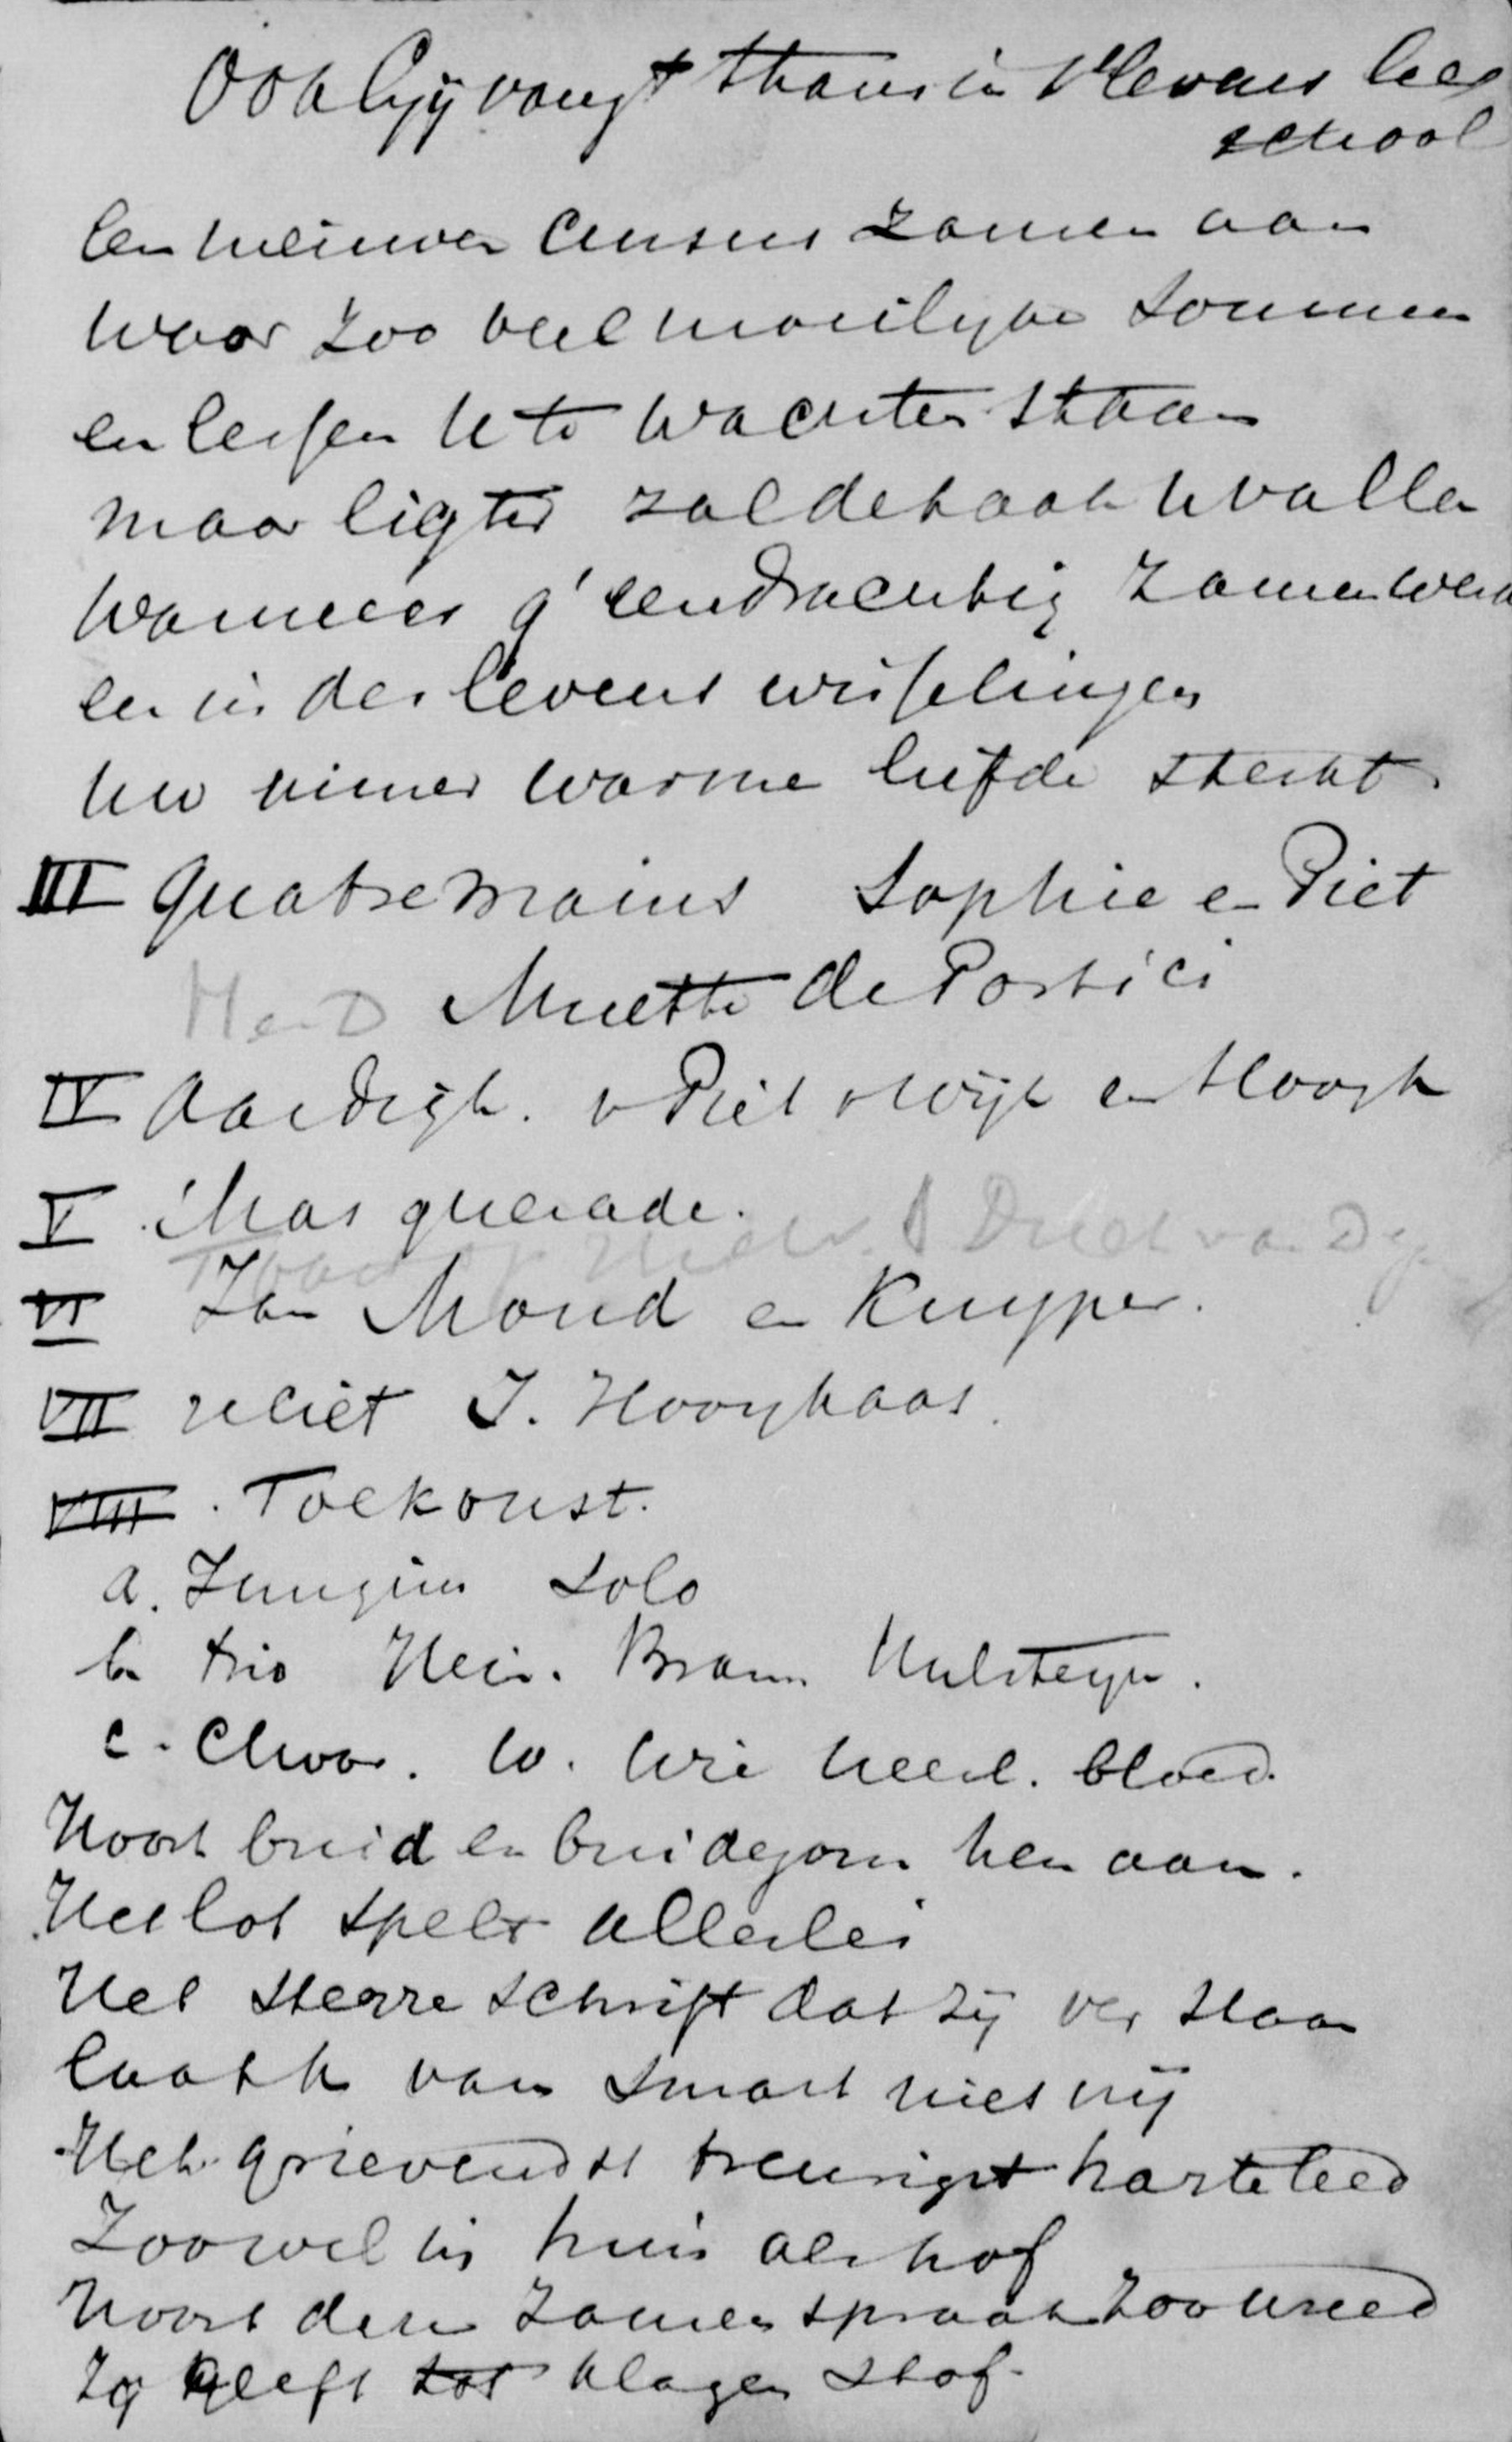 Ook Gij vangt thans in 's levens leer
school
Een nieuwen Cursus zamen aan
Waar zoo veel moeilyke sommen
en lessen U te wachten staan
maar ligter zal de taak U vallen
Wanneer g' eendrachtig zamenwerkt
en in des levens wisselingen
Uw immer warme liefde sterkt.
III Quatremains Sophie en Piet
H en D Muette de Portici
IV Aardigh. v Piet v Wijk en Hoogh
V Masquerade.
VI Jan Moud en Kuyper.
VII reciet J. Hooykaas.
VIII. Toekomst.
a. Jungius Solo
b trio Hein. Bram Hulsteyn.
c. Choor. W. Wie Neerl. bloed.
Hoort bruid en bruidegom hen aan.
Het lot spelt allerlei
Het sterre schrift dat zij ver staan
laat U van smart niet vrij
Het grievendst treurigst harteleed
Zoowel in huis als hof
Hoort deze zamenspraak zoo wreed
Zy geeft tot klagen stof.